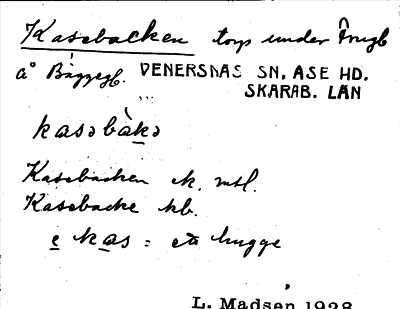 Kasebacken torp under
å Båggegl. VENERSNÄS SN, ASE HD.
SKARAB. LÄN
kasəbàkə
Kasebacken ek. msl.
Kasebacke hb.
e kas : ett hugge
L. Madsen 1928